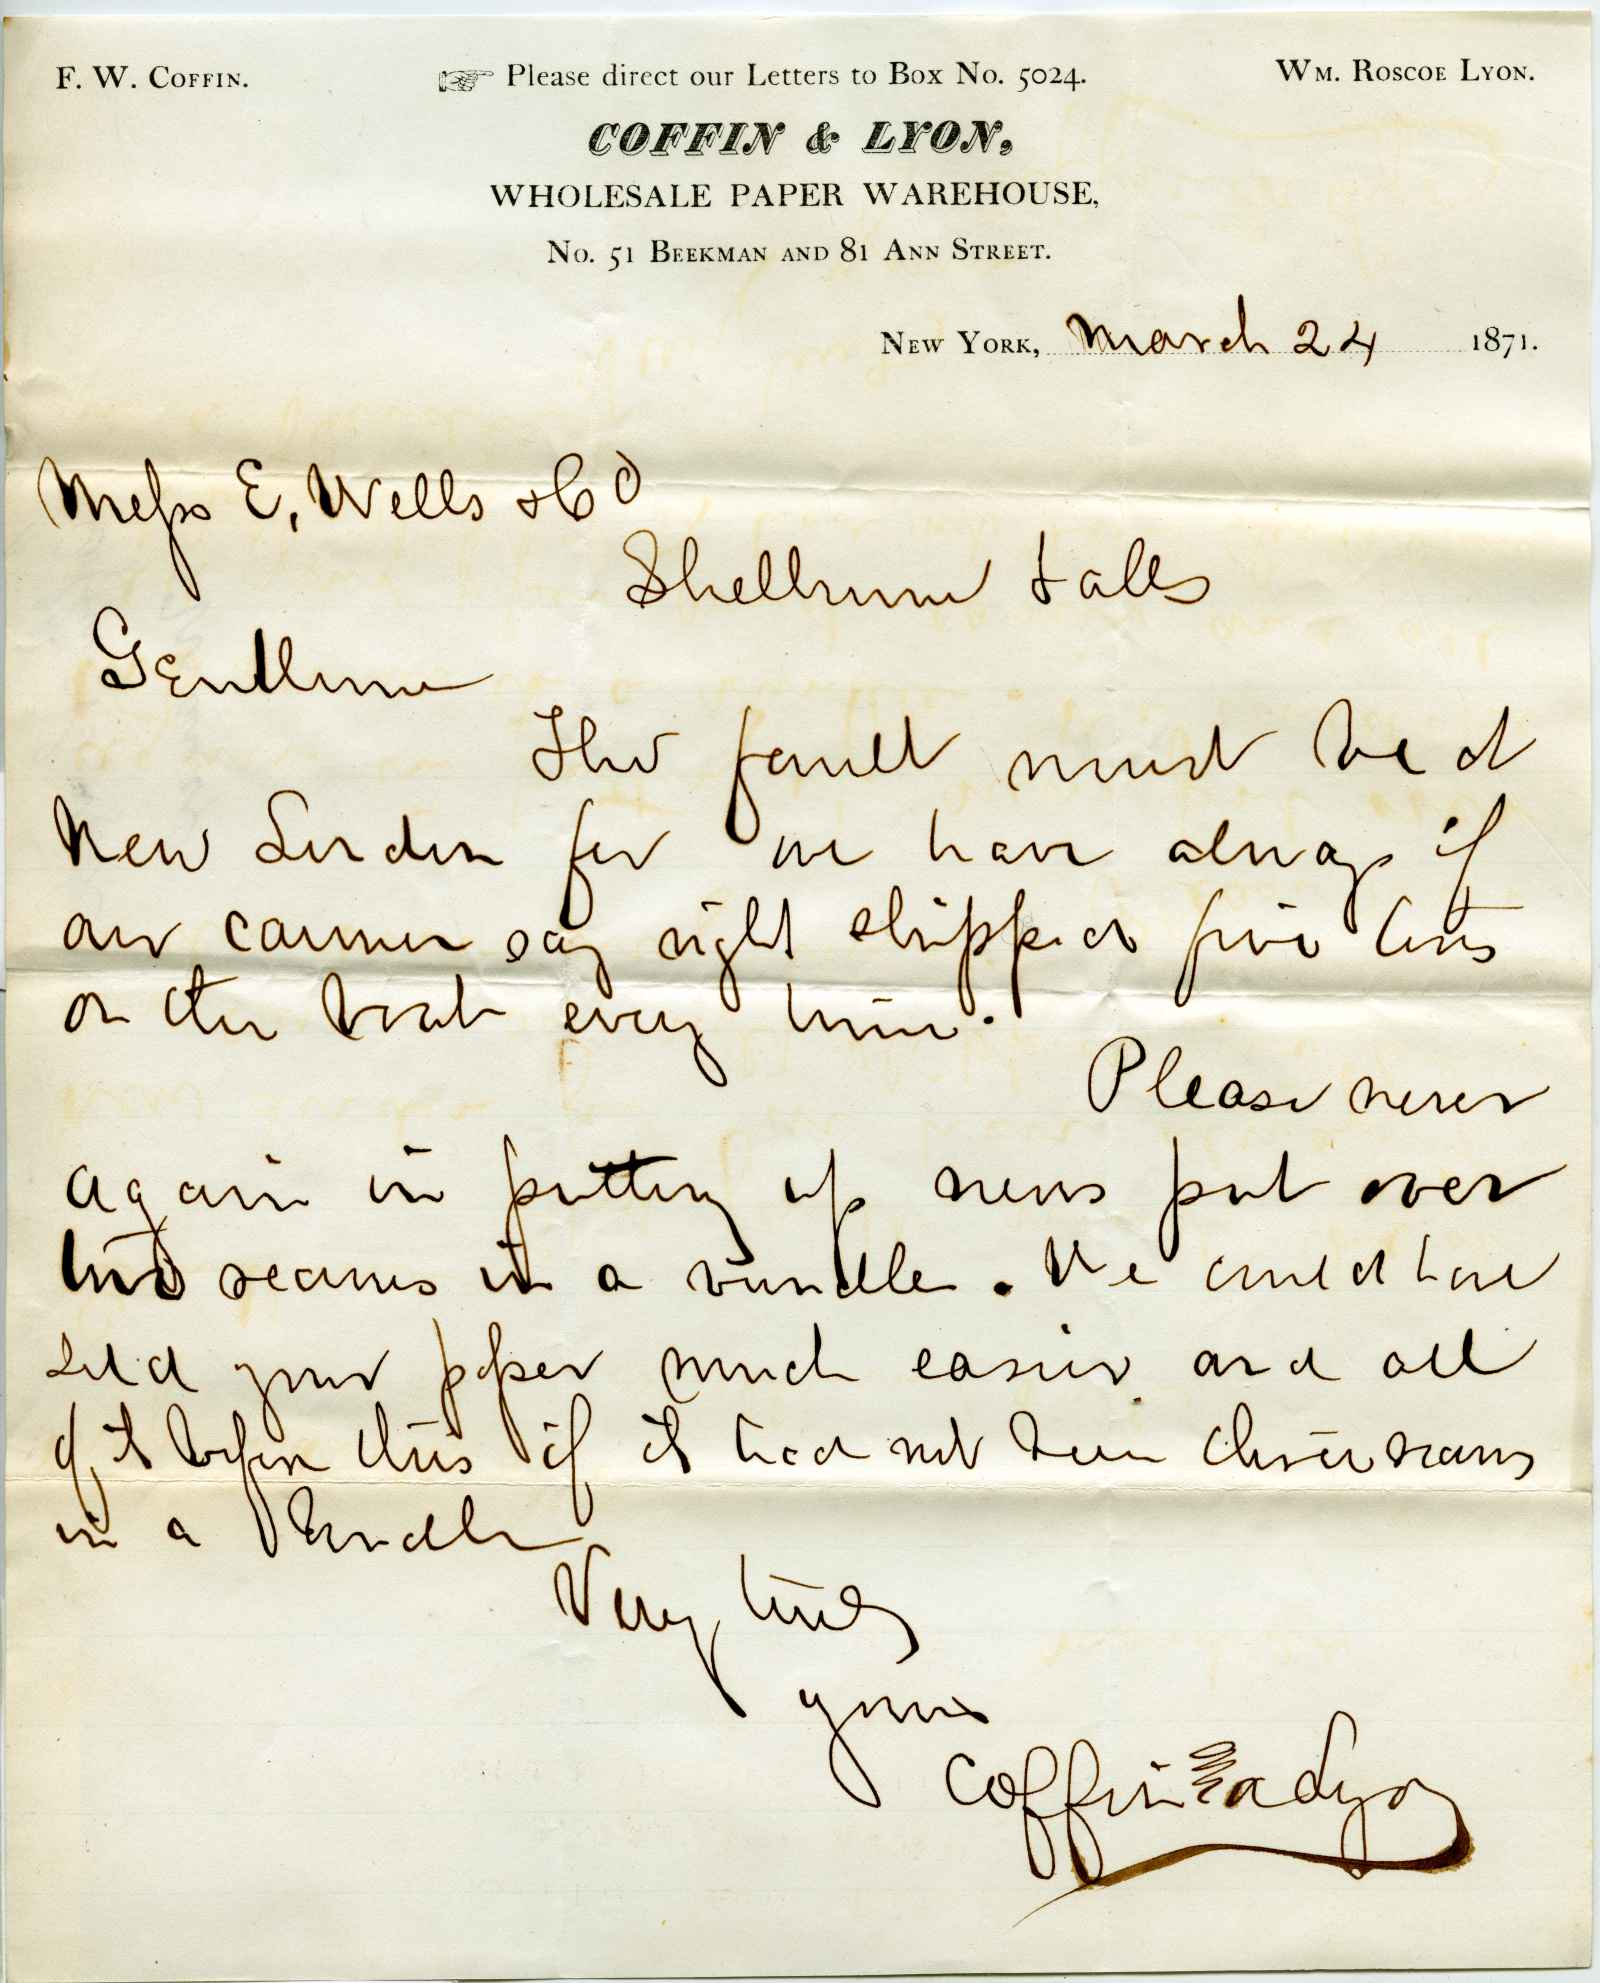 F. W. COFFIN.
Please direct our Letters to Box No. 5024.
WM. ROSCOE LYON.
COFFIN & LYON,
WHOLESALE PAPER WAREHOUSE,
No. 51 BEEKMAN AND 81 ANN STREET.
NEW YORK, March 24 1871.
Mess E. Wells & Co
Shelburne Falls
Gentlemen
The fault must be at
New London for we have always if
our carmen say right shipped five lots
on the boat every time.
Please never
again in putting up news put over
two reams in a bundle. We could have
sold your paper much easier and all
of it before this if it had not been three reams
in a bundle
Very truly
yours
Coffin and Lyon